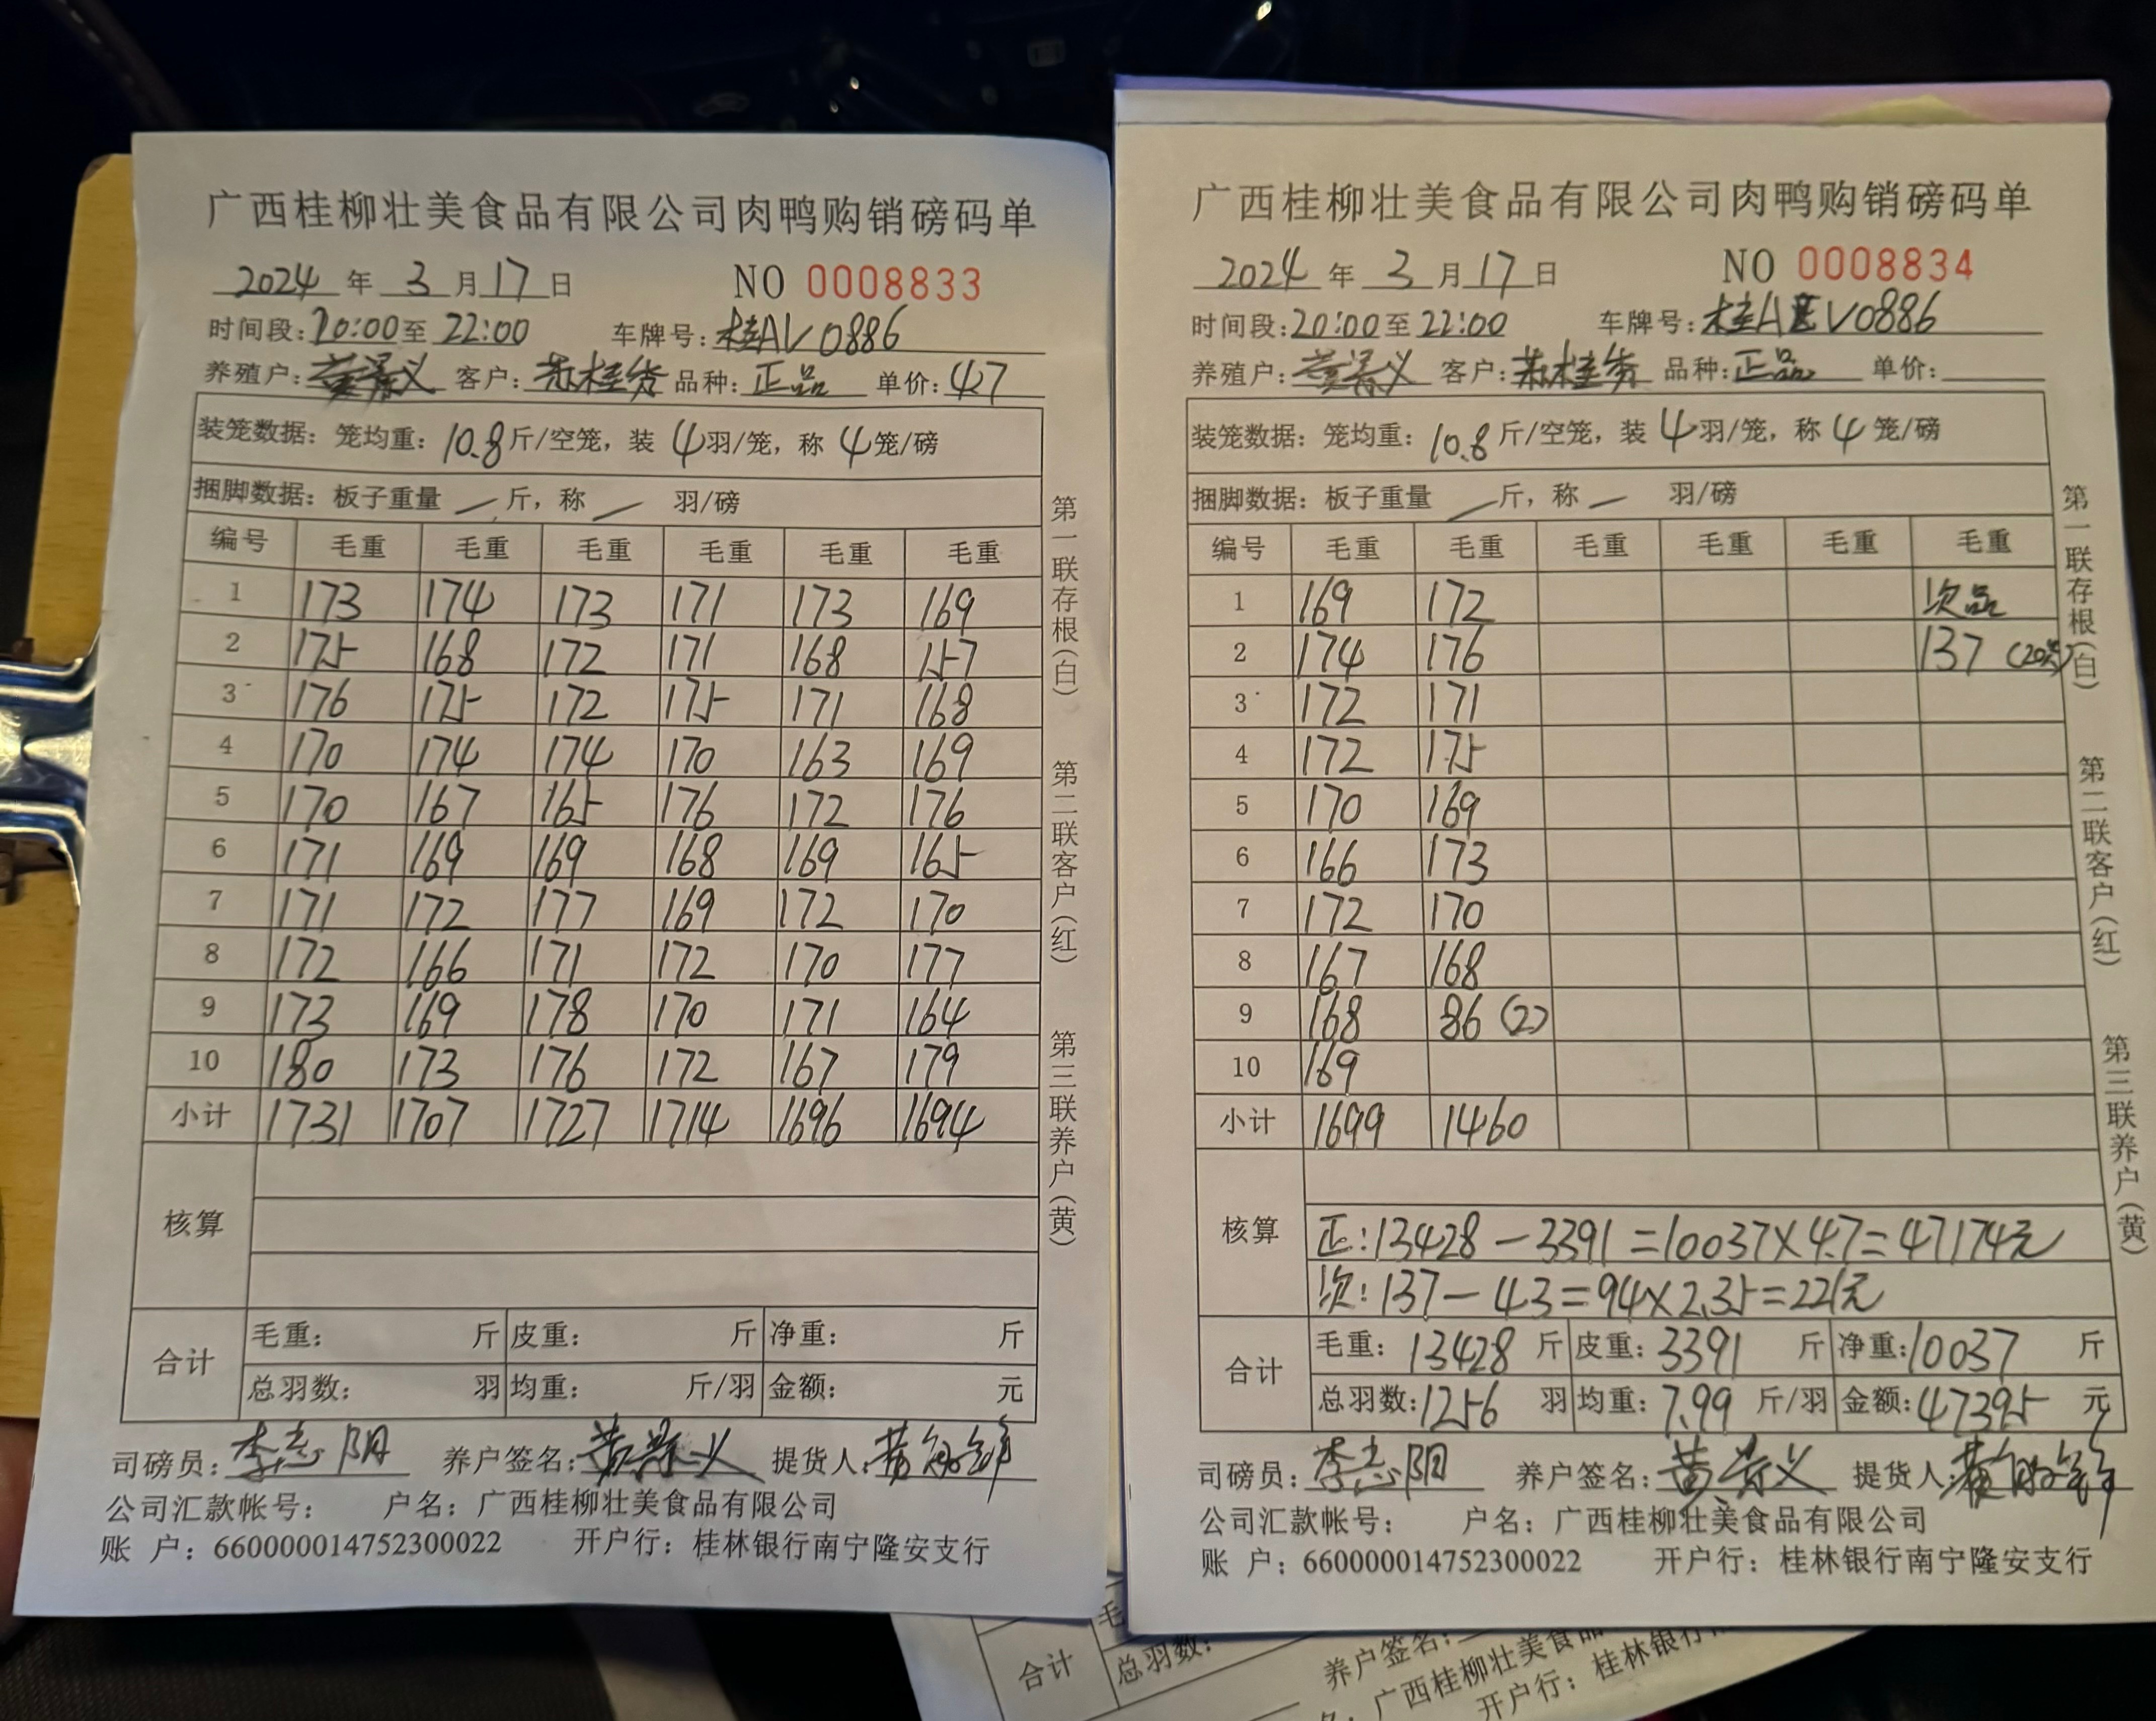 广西桂柳壮美食品有限公司肉鸭购销磅码单
2024 年 3 月 17 日 NO 0008833
时间段:20:00至 22:00 车牌号:桂AV0886
养殖户: 客户: 品种:正品 单价:4.7
装笼数据:笼均重:10.8斤/空笼,装 4羽/笼,称 4笼/磅
捆脚数据:板子重量 / 斤,称 / 羽/磅
编号 毛重 毛重 毛重 毛重 毛重 毛重
1 173 174 173 171 173 169
2 175 168 172 171 168 157
3 176 175 172 175 171 168
4 170 174 174 170 163 169
5 170 167 165 176 172 176
6 171 169 169 168 169 165
7 171 172 177 169 172 170
8 172 166 171 172 170 177
9 173 169 178 170 171 164
10 180 173 176 172 167 179
小计 1731 1707 1727 1714 1696 1694
核算
合计 毛重: 斤 皮重: 斤 净重: 斤
总羽数: 羽 均重: 斤/羽 金额: 元
司磅员:李志阳 养户签名: 提货人:
公司汇款帐号: 户名:广西桂柳壮美食品有限公司
账 户:660000014752300022 开户行:桂林银行南宁隆安支行
第一联存根(白) 第二联客户(红) 第三联养户(黄)
广西桂柳壮美食品有限公司肉鸭购销磅码单
2024 年 3 月 17 日 NO 0008834
时间段:20:00至 22:00 车牌号:桂AV0886
养殖户: 客户: 品种:正品 单价:
装笼数据:笼均重:10.8斤/空笼,装 4羽/笼,称 4 笼/磅
捆脚数据:板子重量 / 斤,称 / 羽/磅
编号 毛重 毛重 毛重 毛重 毛重 毛重
1 169 172 次品
2 174 176 137 (20只)
3 172 171
4 172 175
5 170 169
6 166 173
7 172 170
8 167 168
9 168 86(2)
10 169
小计 1699 1460
核算
正:13428-3391=10037×4.7=47174元
次:137-43=94×2.35=221元
合计 毛重:13428 斤 皮重:3391 斤 净重:10037 斤
总羽数:1256 羽 均重:7.99 斤/羽 金额:47395 元
司磅员:李志阳 养户签名: 提货人:
公司汇款帐号: 户名:广西桂柳壮美食品有限公司
账 户:660000014752300022 开户行:桂林银行南宁隆安支行
第一联存根(白) 第二联客户(红) 第三联养户(黄)
合计 毛
总羽数:
养户签名:
广西桂柳壮美食品
开户行:桂林银行